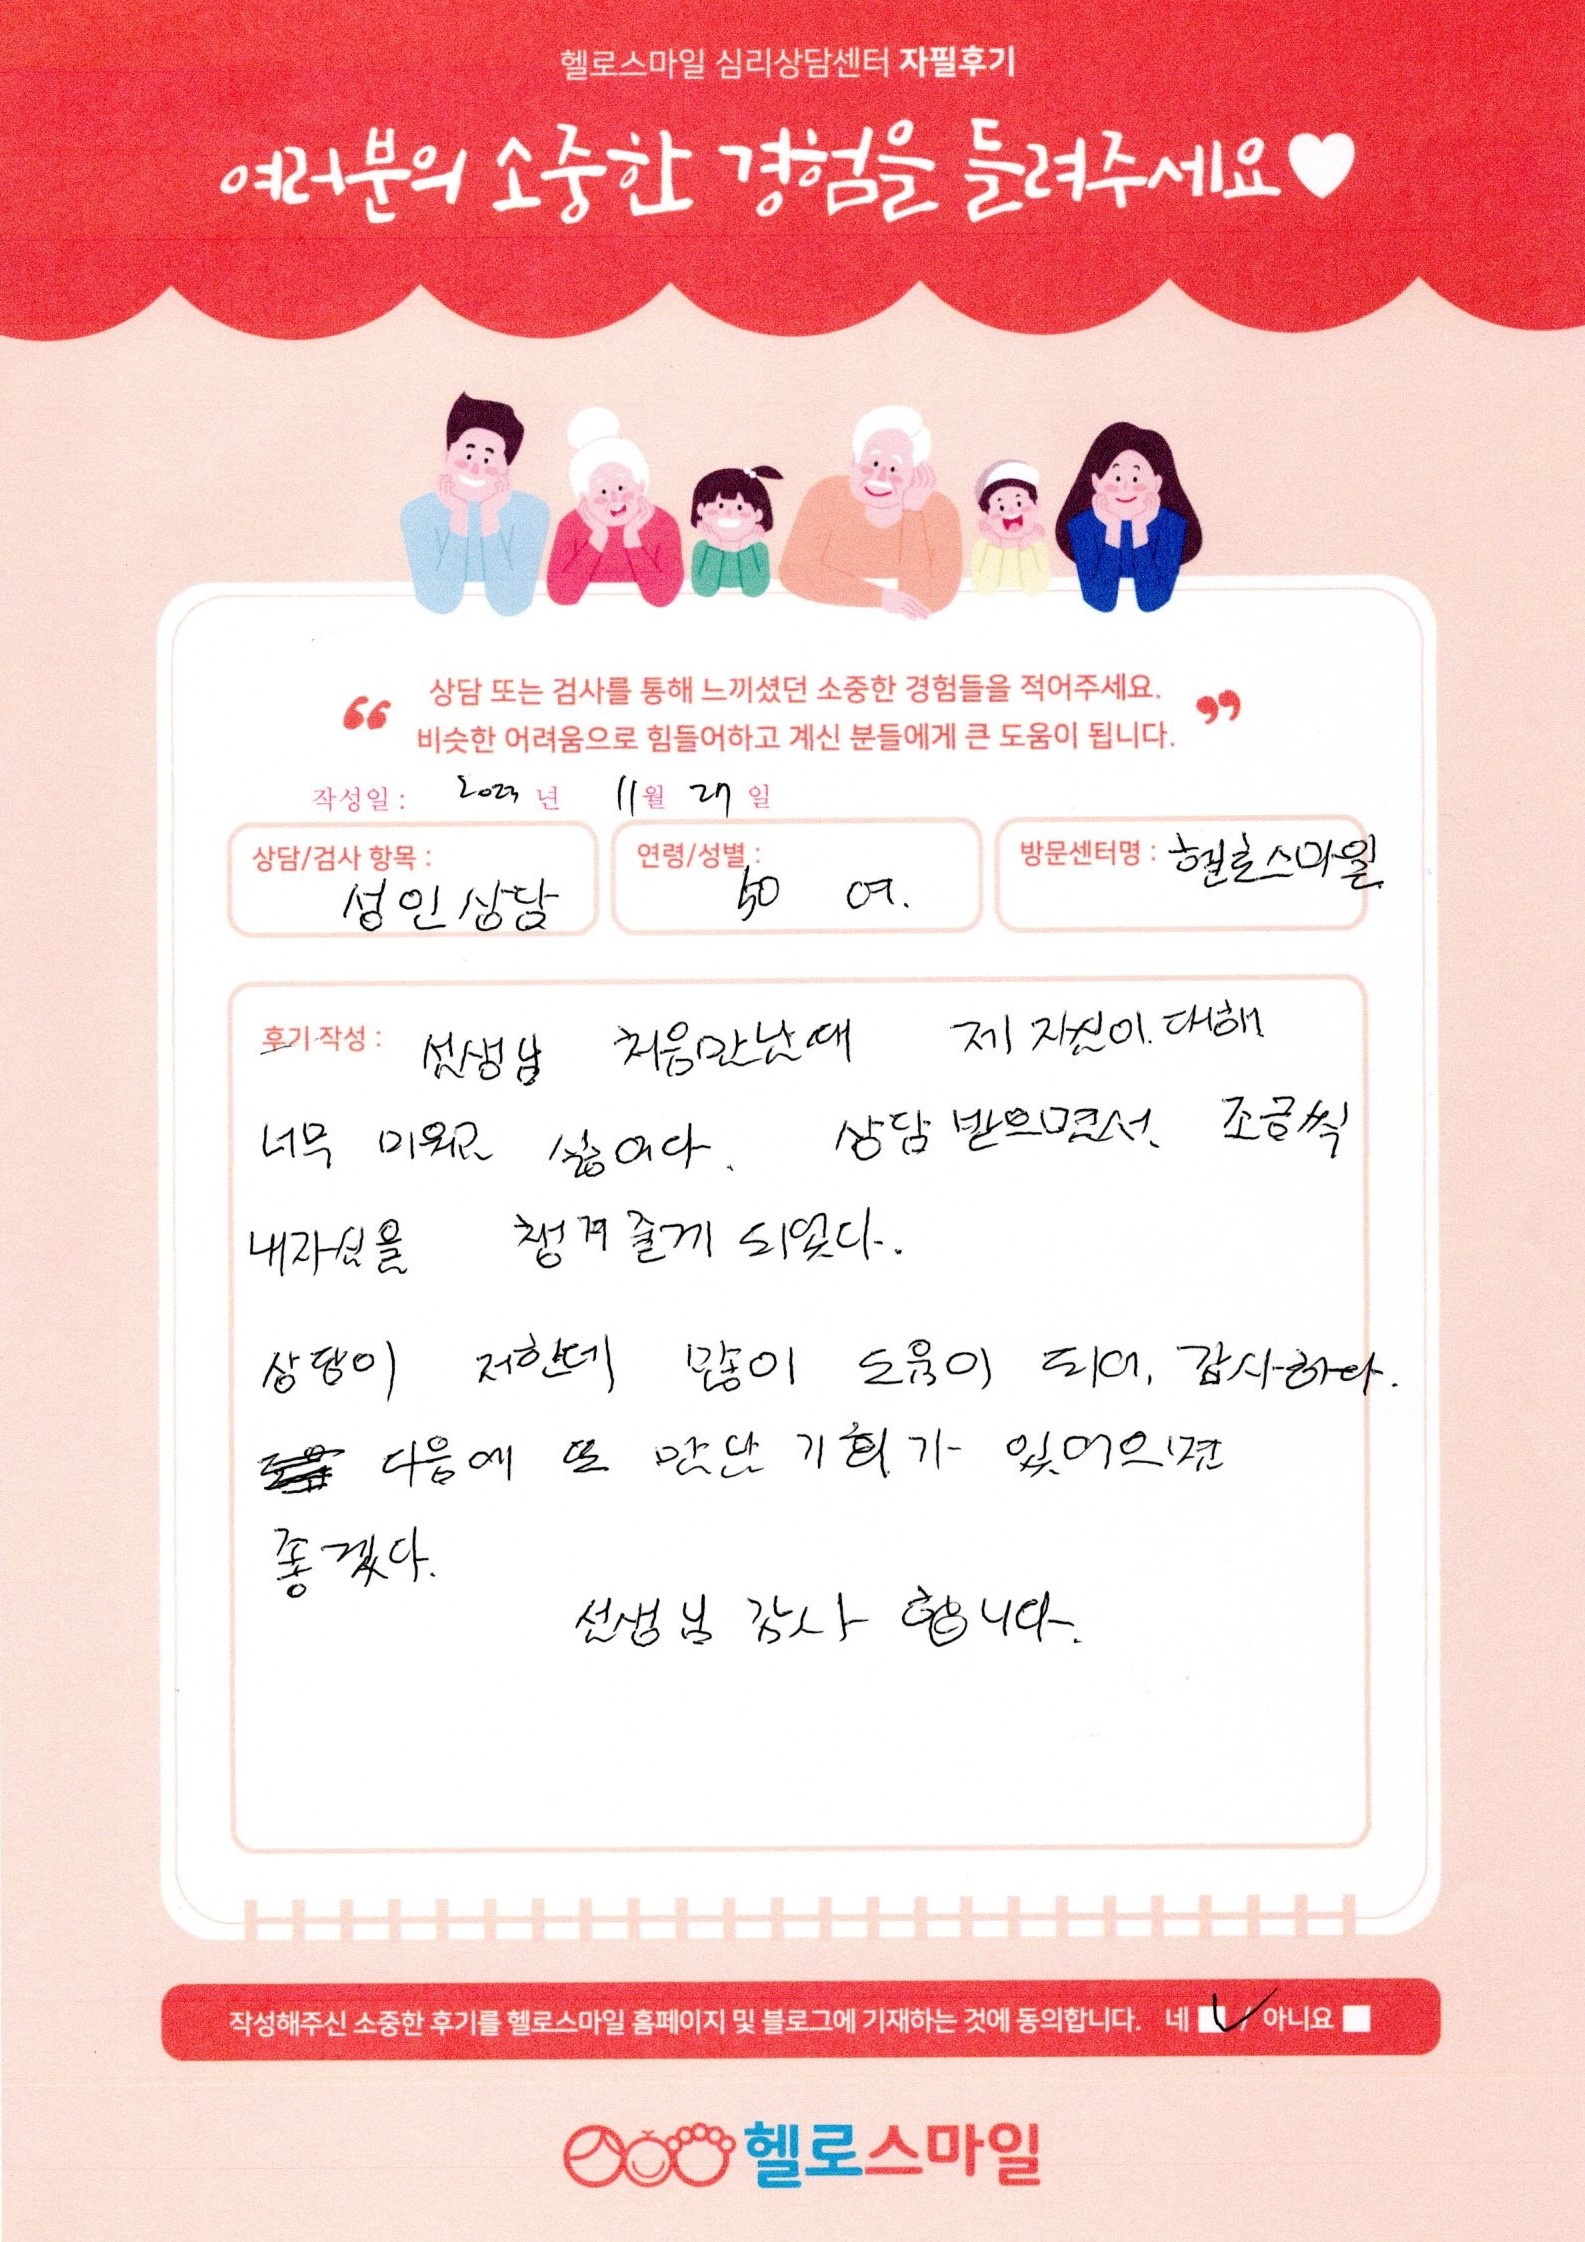 헬로스마일 심리상담센터 자필후기
여러분의 소중한 경험을 들려주세요
상담 또는 검사를 통해 느끼셨던 소중한 경험들을 적어주세요.
비슷한 어려움으로 힘들어하고 계신 분들에게 큰 도움이 됩니다.
작성일 : 2023 년 11월 27 일
상담/검사 항목 : 성인상담
연령/성별 : 50 여.
방문센터명 : 헨로스마일
후기 작성 : 선생님 처음만난때 제 자신이 대해
너무 미워고 싫어다. 상담 받으면서 조금씩
내자신을 챙겨줄게 되었다.
상담이 저한데 많이 도움이 되어, 감사하다.
다음에 또 만난 기회가 있어으면
좋겠다.
선생님 감사 합니다.
작성해주신 소중한 후기를 헬로스마일 홈페이지 및 블로그에 기재하는 것에 동의합니다. 네 / 아니요
헬로스마일